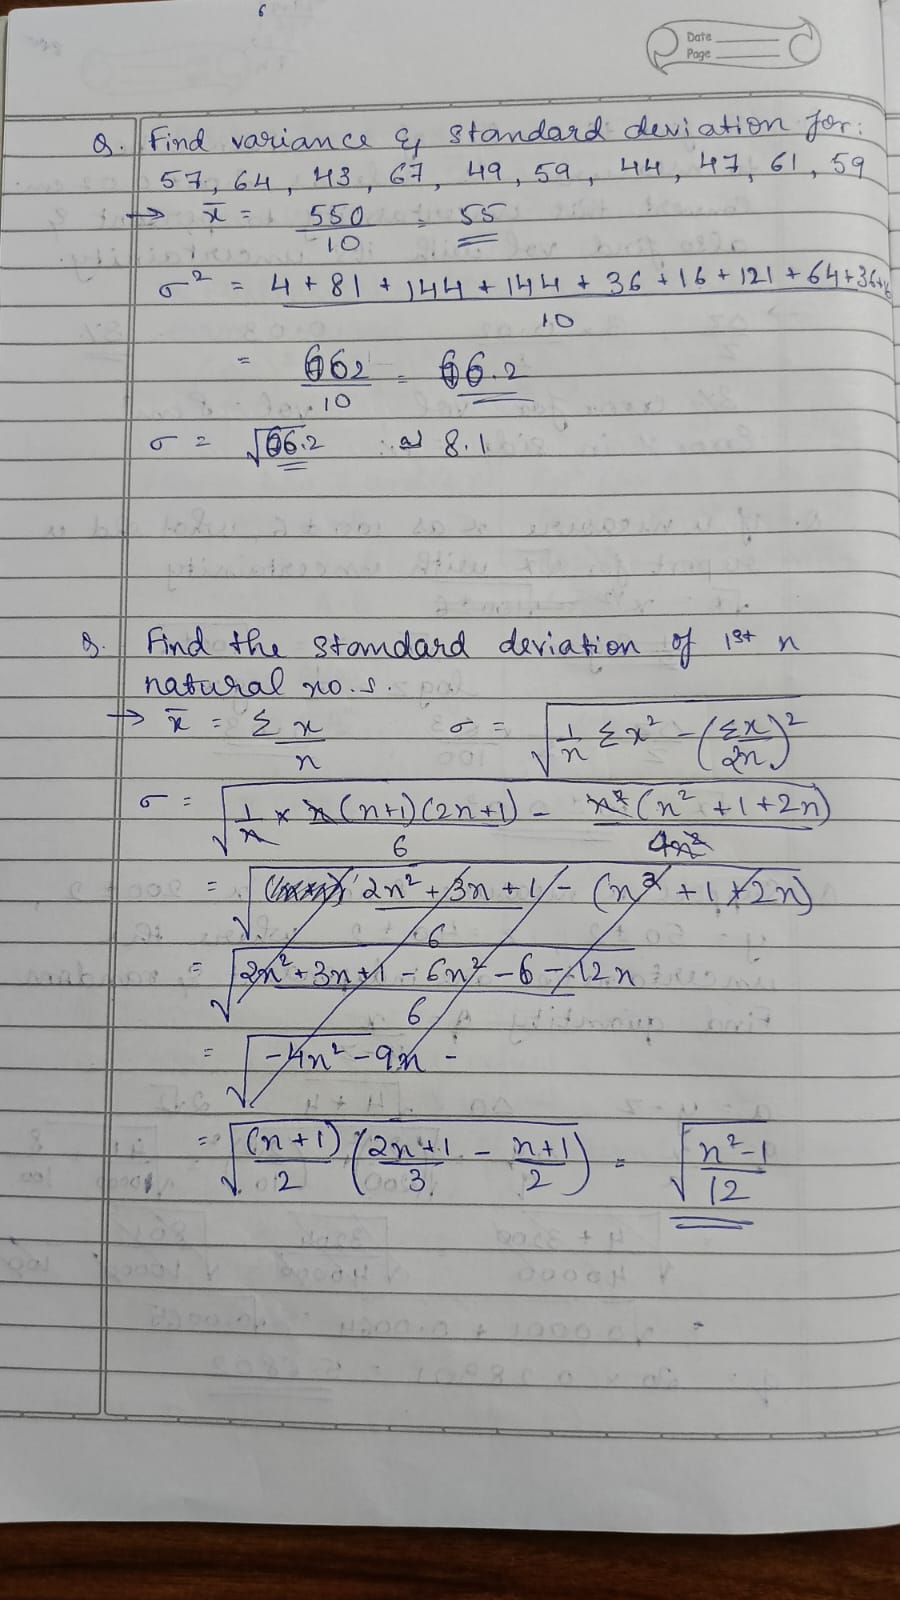 6
Date
Page
Q. Find variance & standard deviation for:
57, 64, 43, 67, 49, 59, 44, 47, 61, 59
→ x̄ = 550/10 = 55
σ² = (4 + 81 + 144 + 144 + 36 + 16 + 121 + 64 + 36 + 16)/10
= 662/10 = 66.2
σ = √66.2 ≈ 8.1
Q. Find the standard deviation of 1st n
natural no.s.
→ x̄ = Σx/n σ = √(1/n Σx² - (Σx/2n)²)
σ = √(1/n × n(n+1)(2n+1)/6 - n²(n² + 1 + 2n)/4n²)
= √((2n² + 3n + 1)/6 - (n² + 1 + 2n))
= √((2n² + 3n + 1 - 6n² - 6 - 12n)/6)
= √(-4n² - 9n -
= √((n+1)/2 ((2n+1)/3 - (n+1)/2)) = √((n²-1)/12)